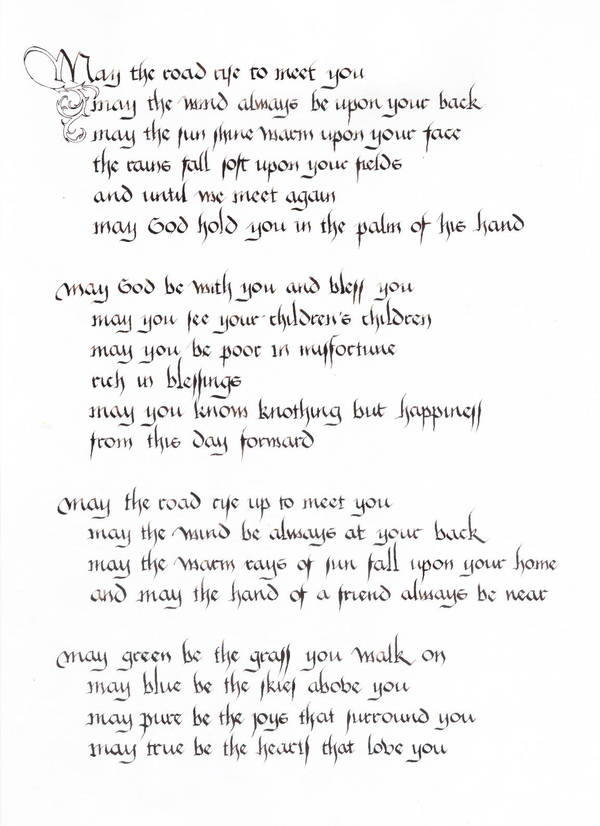 May the road rise to meet you
may the wind always be upon your back
may the sun shine warm upon your face
the rains fall soft upon your fields
and until we meet again
may God hold you in the palm of his hand
may God be with you and bless you
may you see your children's children
may you be poor in misfortune
rich in blessings
may you know knothing but happiness
from this day forward
may the road rise up to meet you
may the wind be always at your back
may the warm rays of sun fall upon your home
and may the hand of a friend always be near
may green be the grass you walk on
may blue be the skies above you
may pure be the joys that surround you
may true be the hearts that love you